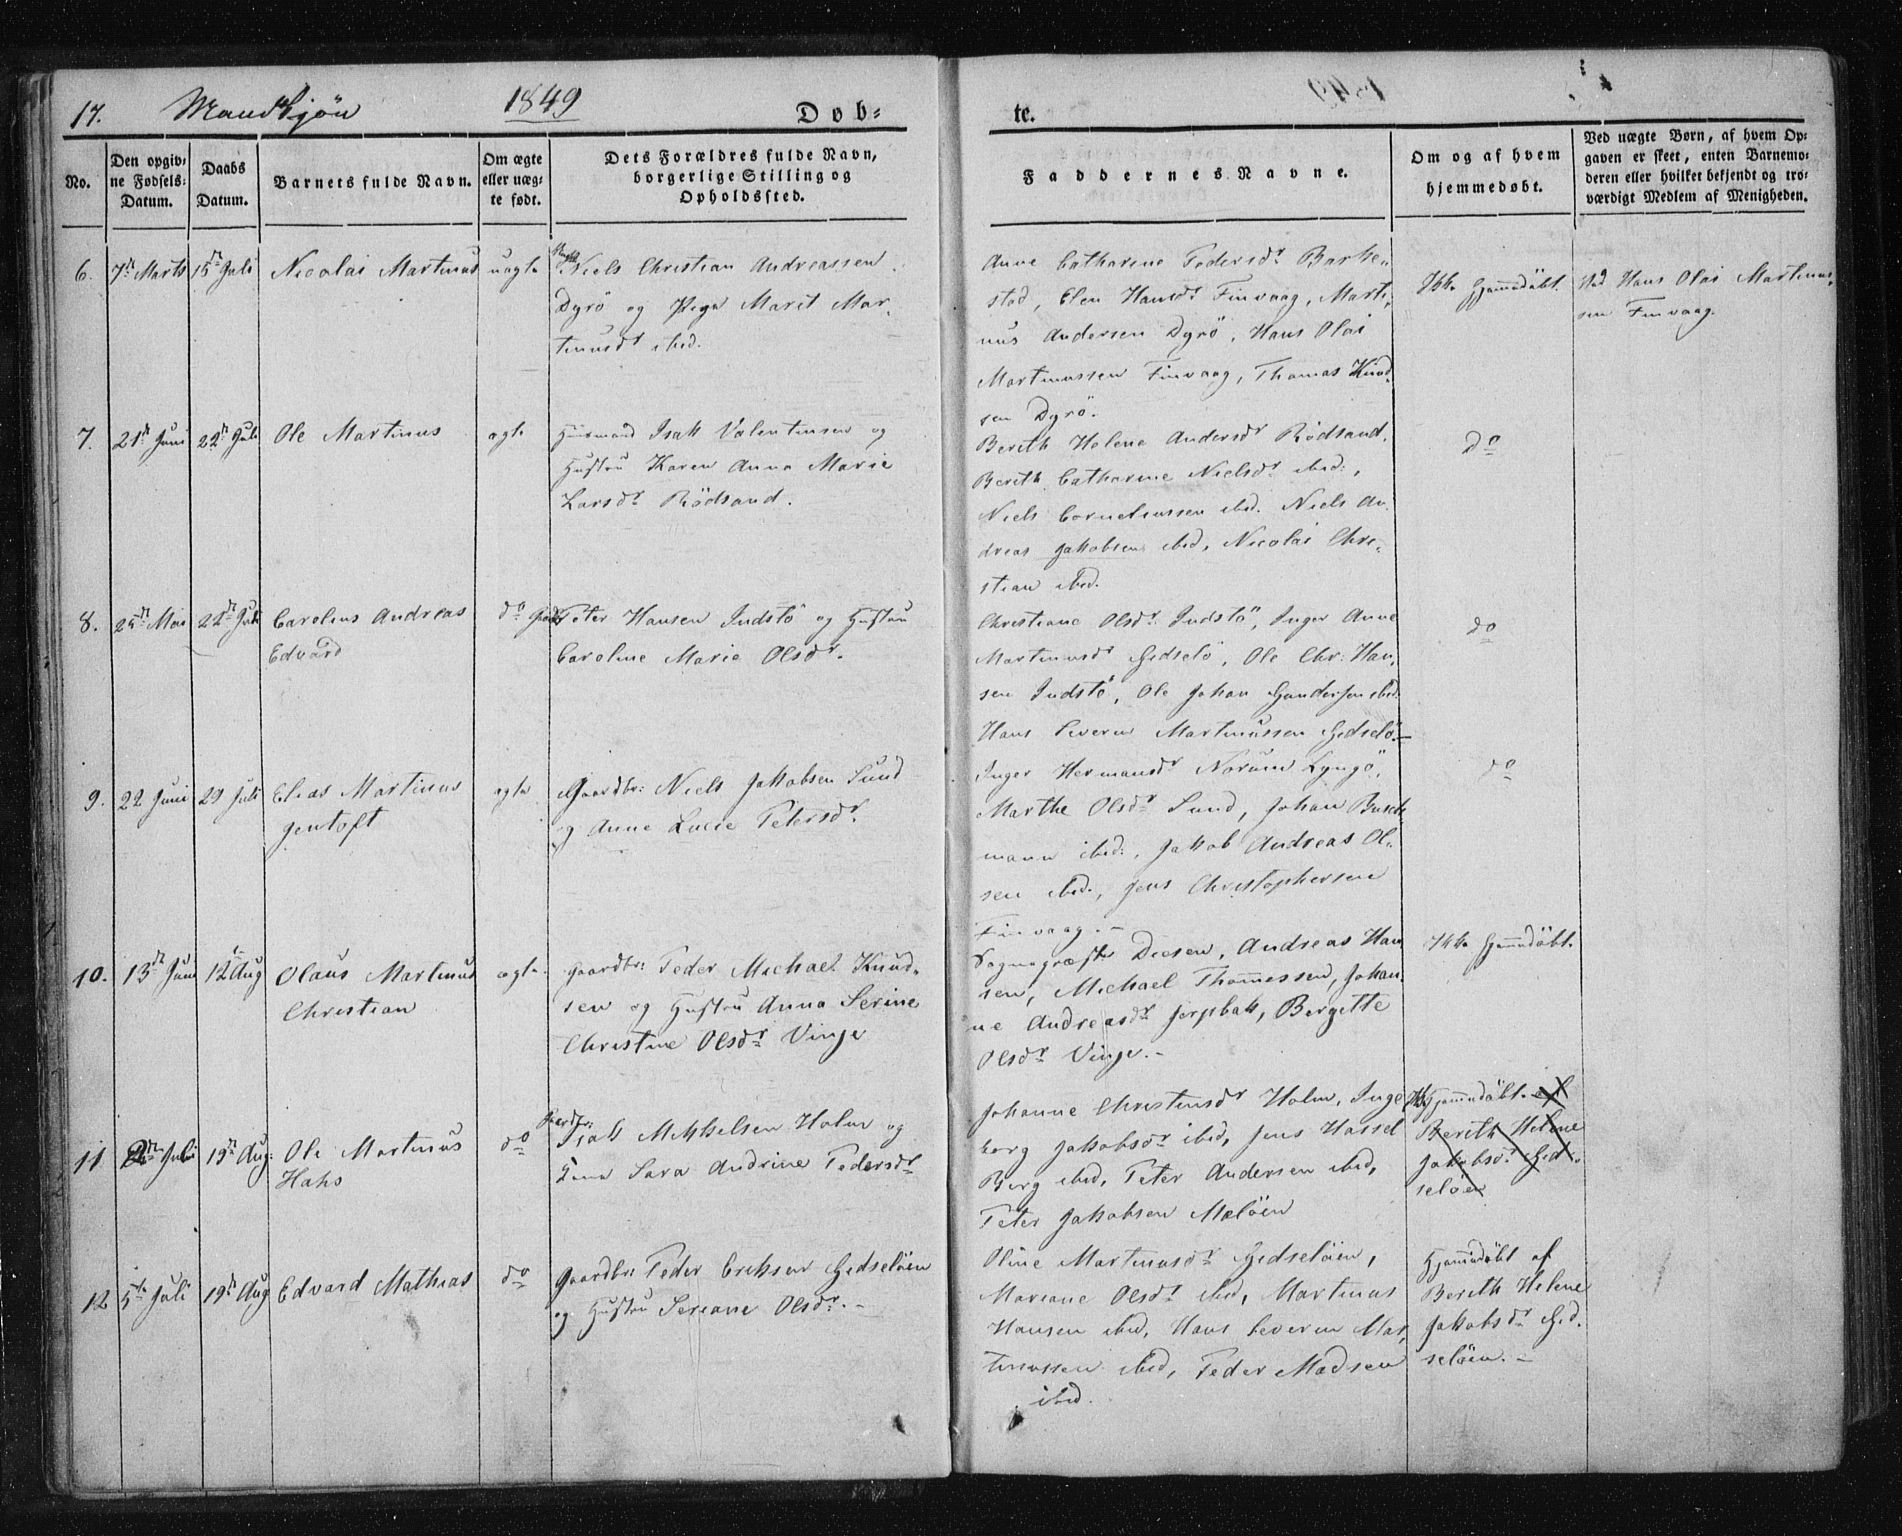 17. Mandkjøn 1849 Døb-
te.
No.
Den opgiv-
ne Fødsels-
Datum.
Daabs
Datum.
Barnets fulde Navn.
Om ægte
eller uæg-
te født.
Dets Forældres fulde Navn,
borgerlige Stilling og
Opholdssted.
Faddernes Navne.
Om og af hvem
hjemmedøbt.
Ved uægte Børn, af hvem Op-
gaven er skeet, enten Barnemo-
deren eller hvilket bekjendt og tro-
værdigt Medlem af Menigheden.
6. 7de Marts 15de Juli Nicolai Martinus uægte
Niels Christian Andreassen
Dyrö og Pige Marit Mar-
tinusdr ibid.
Anne Catharine Pedersdr Barke-
stad, Elen Hansdr Finvaag, Marti-
nus Andersen Dyrö, Hans Olai
Martinussen Finvaag, Thomas Knud-
sen Dyrö.
Ikke hjemmedöbt.
Ved Hans Olai Martinus-
sen Finvaag.
7. 21de Juni 22de Juli Ole Martinus ægte
Huusmand Isak Valentinsen og
Hustru Karen Anna Marie
Larsdr Rödsand.
Bereth Helene Andersdr Rödsand,
Bereth Catharine Nielsdr ibid:,
Niels Corneliussen ibid. Niels An-
dreas Jakobsen ibid, Nicolai Chri-
stian ibid.
do
8. 25de Mai 22de Juli Carelius Andreas
Edvard
do Gaardbr. Peter Hansen Indstö og Hustru
Caroline Marie Olsdr.
Christiane Olsdr Indstö, Inger Anne
Martinusdr Gidselö, Ole Chr: Han-
sen Indstö, Ole Johan Gundersen ibid.
Hans Severin Martinussen Gidselö.-
do
9. 22 Juni 29 Juli Elias Martinus
Jentoft
ægte
Gaardbr: Niels Jakobsen Sund
og Anne Lucie Petersdr.
Inger Hermansdr Norum Lyngö,
Marthe Olsdr Sund, Johan Busch
mann ibid:, Jakob Andreas Ol-
sen ibid., Jens Christophersen
Finvaag.-
do
10. 13de Juni 12te Aug Olaus Martinus
Christian
ægte.
Gaardbr: Peder Michael Knud-
sen og Hustru Anna Serine
Christine Olsdr Vinje
Sognepræst Diesen, Andreas Han
sen, Michael Thomessen, Johan-
ne Andreasdr Jerpbak, Bergitte
Olsdr Vinje.-
Ikke hjemmdöbt.
11 2den Juli 19de Aug: Ole Martinus
Hans
do
Gaardbr: Isak Mikkelsen Holm og
Kone Sara Andrine Pedersdr
Johanne Christensdr Holm, Inge
borg Jakobsdr ibid, Jens Hassel
Berg ibid, Peter Andersen ibid,
Peter Jakobsen Melöen
Hjemmedöbt. af
Bereth Helene
Jakobsdr Gid-
selöen
12 5te Juli 19de Aug Edvard Mathias do
Gaardbr: Peder Eriksen Gidselöen
og Hustru Seriane Olsdr.-
Oline Martinusdr Gidselöen,
Mariane Olsdr ibid, Martinus
Hansen ibid, Hans Severin Mar-
tinussen ibid, Peder Madsen
ibid.
Hjemmedöbt af
Bereth Helene
Jakobsdr Gid-
selöen.-